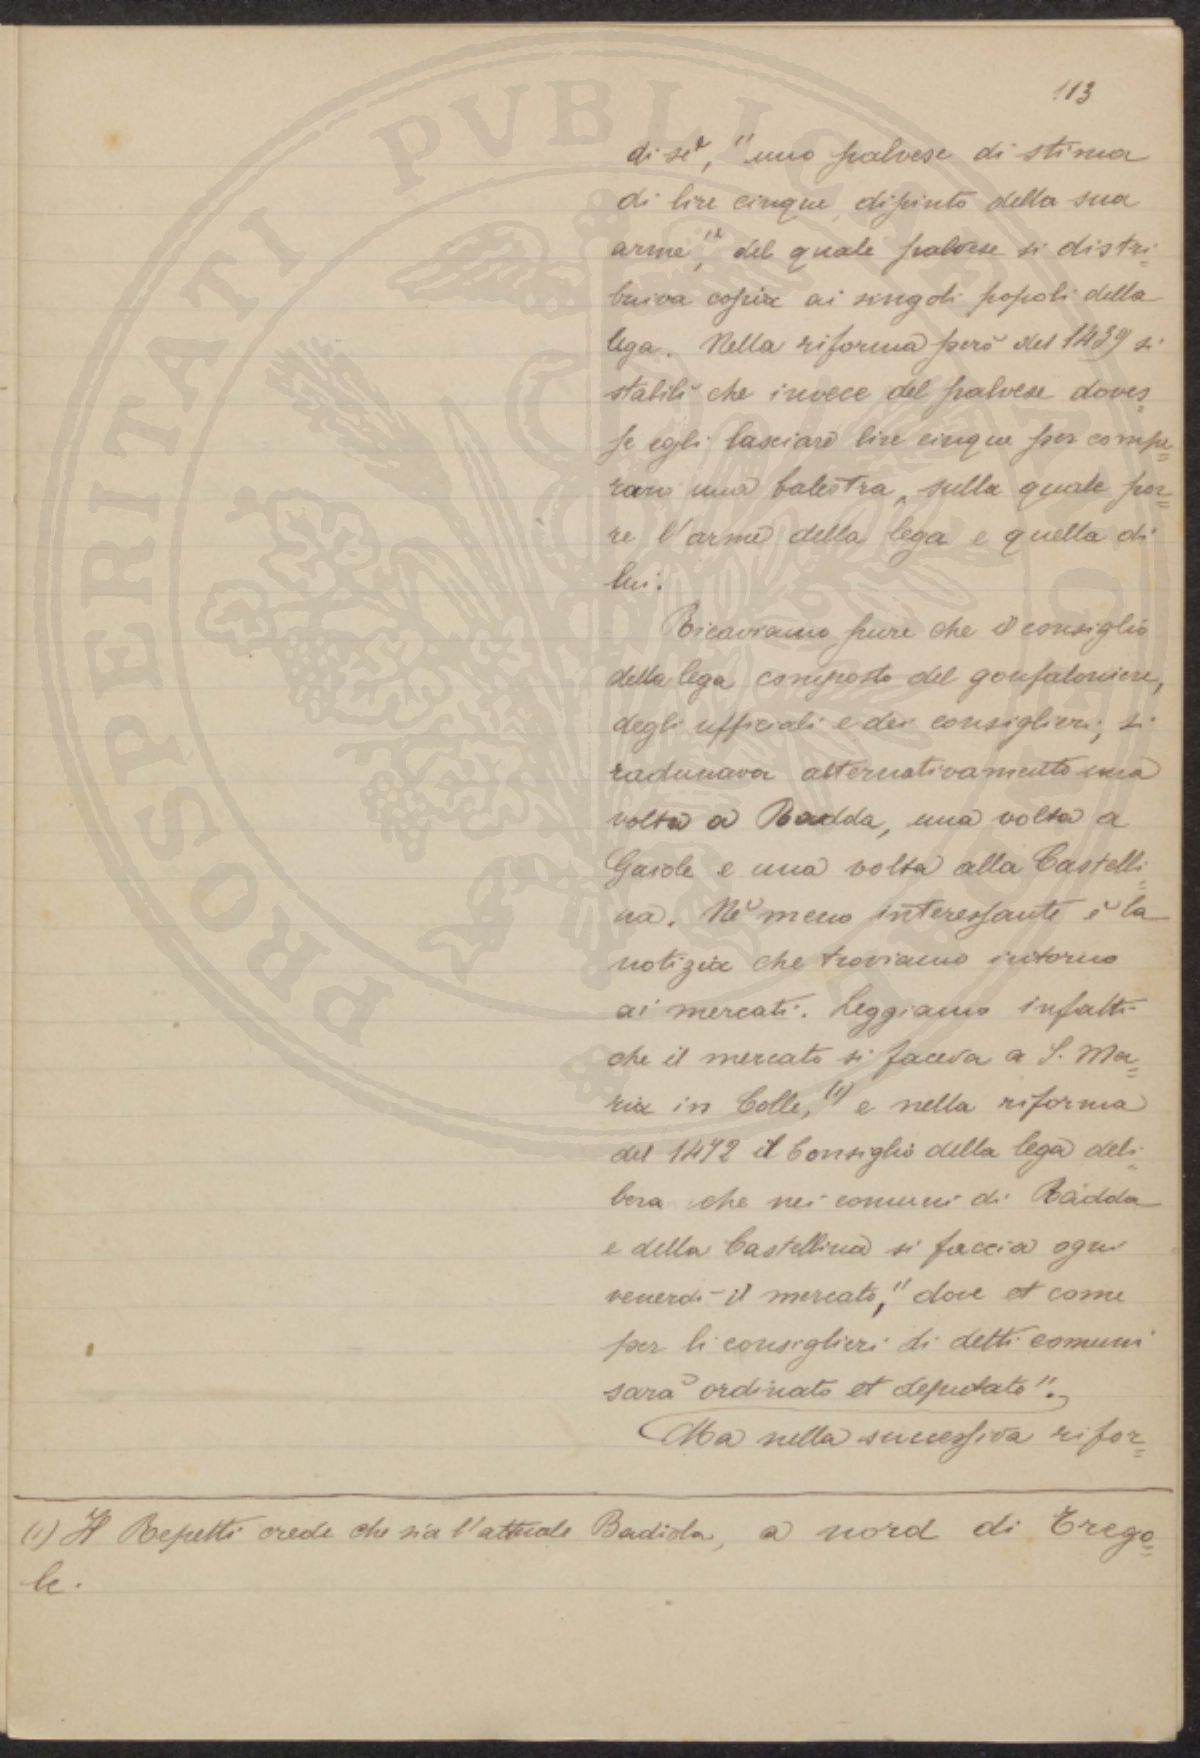 113
di sé", "uno palvese di stima
di lire cinque, dipinto della sua
arme", del quale palvese si distri=
buiva copia ai singoli popoli della
lega. Nella riforma però del 1439 si
stabilì che invece del palvese doves=
se egli lasciare lire cinque per compe=
rare una balestra, sulla quale por=
re l'arme della lega e quella di
lui.
Ricaviamo pure che il consiglio
della lega composto del gonfaloniere,
degli ufficiali e dei consiglieri, si
radunava alternativamente una
volta a Radda, una volta a
Gaiole e una volta alla Castelli=
na. Nè meno interessante è la
notizia che troviamo intorno
ai mercati. Leggiamo infatti
che il mercato si faceva a S. Ma=
ria in Colle, (1) e nella riforma
del 1472 il Consiglio della lega deli=
bera che nei comuni di Radda
e della Castellina si faccia ogni
venerdì il mercato, "dove et come
per li consiglieri di detti comuni
sarà ordinato et deputato".
Ma nella successiva rifor=
(1) Il Repetti crede che sia l'attuale Badiola, a nord di Trego=
le.
PROSPERITATI PVBLICAE